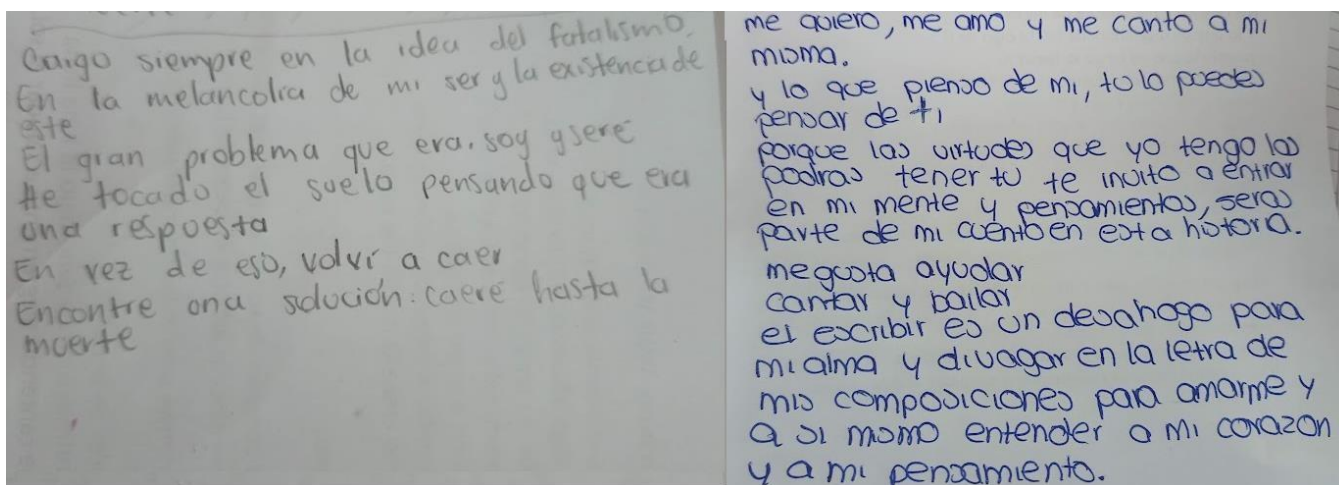 Caigo siempre en la idea del fatalismo.
En la melancolia de mi ser y la existencia de
este
El gran problema que era, soy y sere
He tocado el suelo pensando que era
una respuesta
En vez de eso, volvi a caer
Encontre una solución: caere hasta la
muerte
me quiero, me amo y me canto a mi
misma.
y lo que pienso de mi, tu lo puedes
pensar de ti
porque las virtudes que yo tengo las
podras tener tu te invito a entrar
en mi mente y pensamientos, seras
parte de mi cuento en esta historia.
me gusta ayudar
cantar y bailar
el escribir es un desahogo para
mi alma y divagar en la letra de
mis composiciones para amarme y
a si mismo entender a mi corazon
y a mi pensamiento.